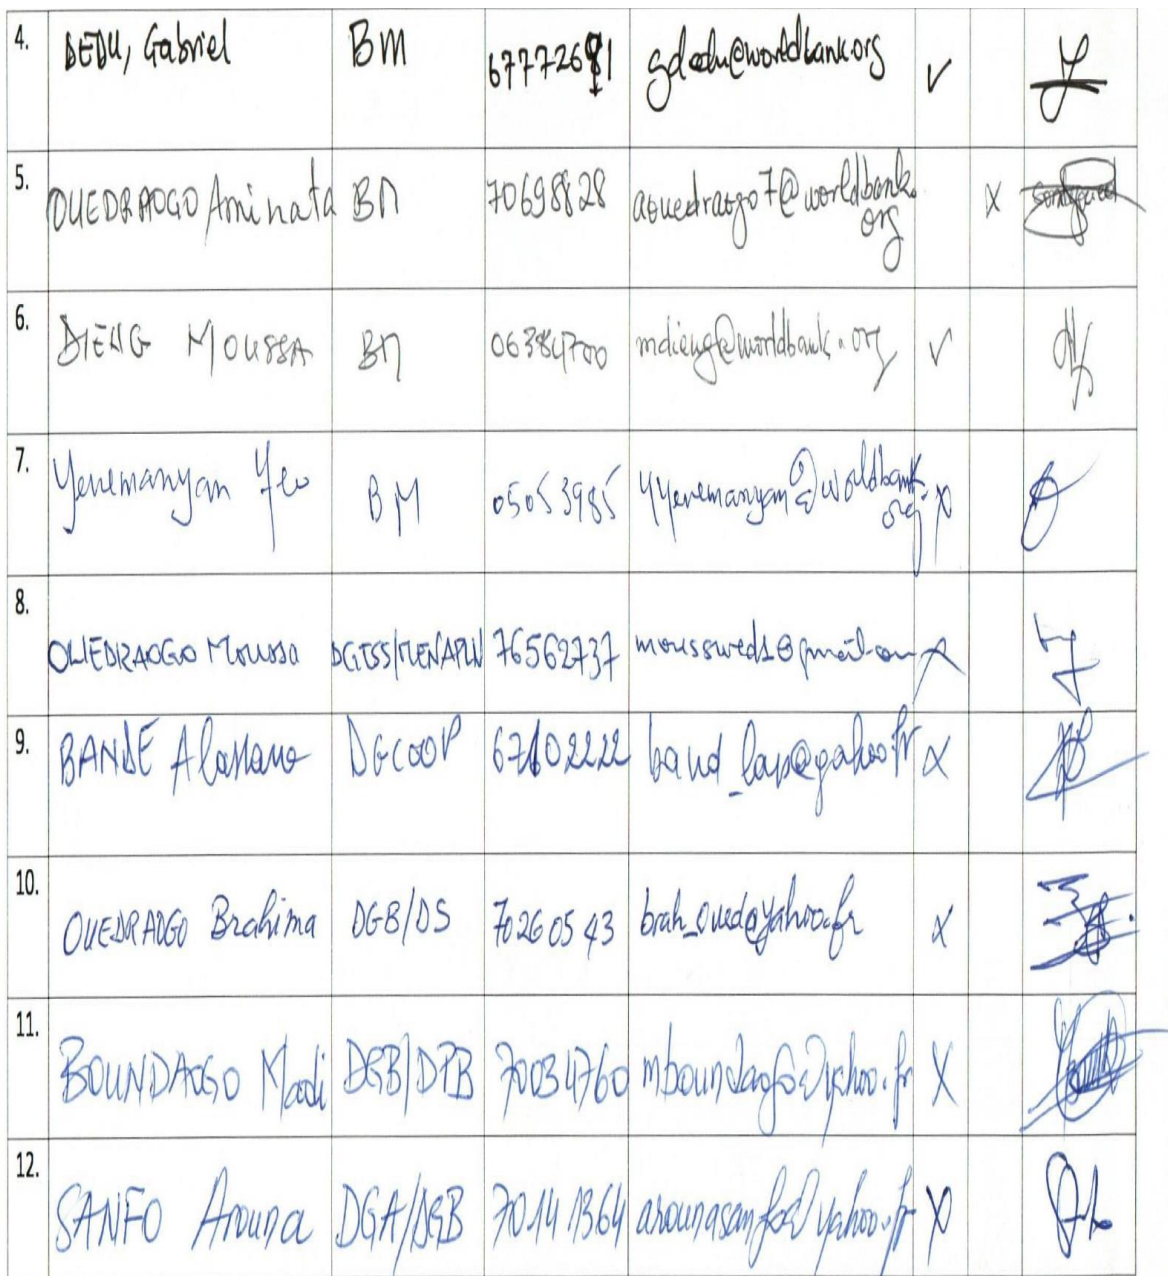 4. DEDU, Gabriel BM 67772691 gdedu@worldbank.org ✓
5. OUEDRAOGO Aminata BM 70698828 aouedraogo7@worldbank. x
org
6. DIENG MOUSSA BM 06384700 mdieng@worldbank.org ✓
7. Yenemanyan Yeo BM 05053985 yyenemanyan@worldbank x
org
8. OUEDRAOGO Moussa DGESS/MENAPLN 76562737 x
9. BANDE Alassane DGCOOP 67102222 band_lass@yahoo.fr x
10. OUEDRAOGO Brahima DGB/DS 70260543 brah_oued@yahoo.fr x
11. BOUNDAOGO Madi DGB/DPB 70034760 mboundaogo@yahoo.fr X
12. SANFO Arouna DGA/DGB 70141364 arounasanfo@yahoo.fr X